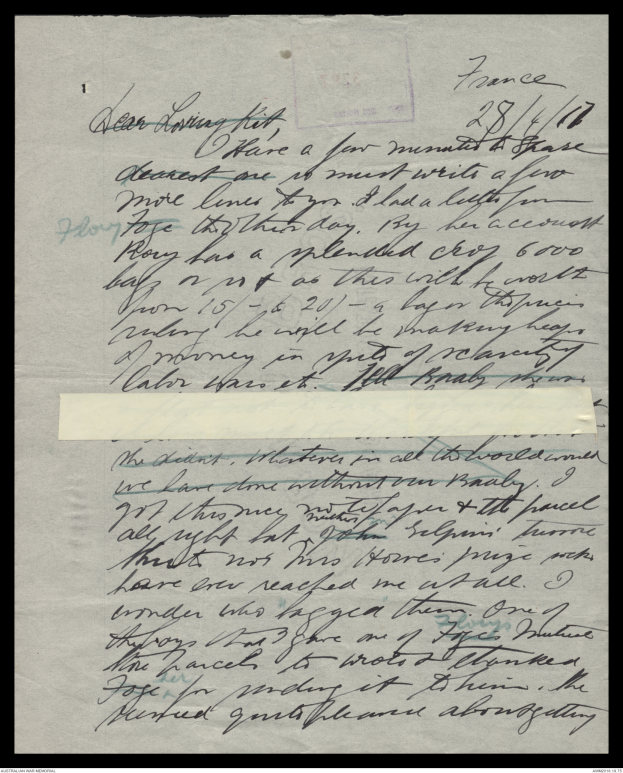 1
France
28/4/17
Dear Loving Kit,
Have a few minutes to spare
dearest one so must write a few
more lines to you. I had a letter from
Flory Foge the other day. By her account
Rory has a splendid crop 6000
bags or not as this will be worth
from 15/- to 20/- a bag or the price is
ruling he will be making heaps
of money in spite of scarcity of
labor wars etc. Baaby she was
she didn't. Whatever in all the world would
we have done without our Baaby. I
got this nicy notepaper & the parcel
all right but neither John Gilpins
nor Mrs Howes prize socks
have ever reached me at all. I
wonder who "sagged" them. One of
the boys that I gave one of Foge Florys
the parcels to wrote & thanked
Foge her for sending it to him. She
seemed quite pleased about getting
AUSTRALIAN WAR MEMORIAL